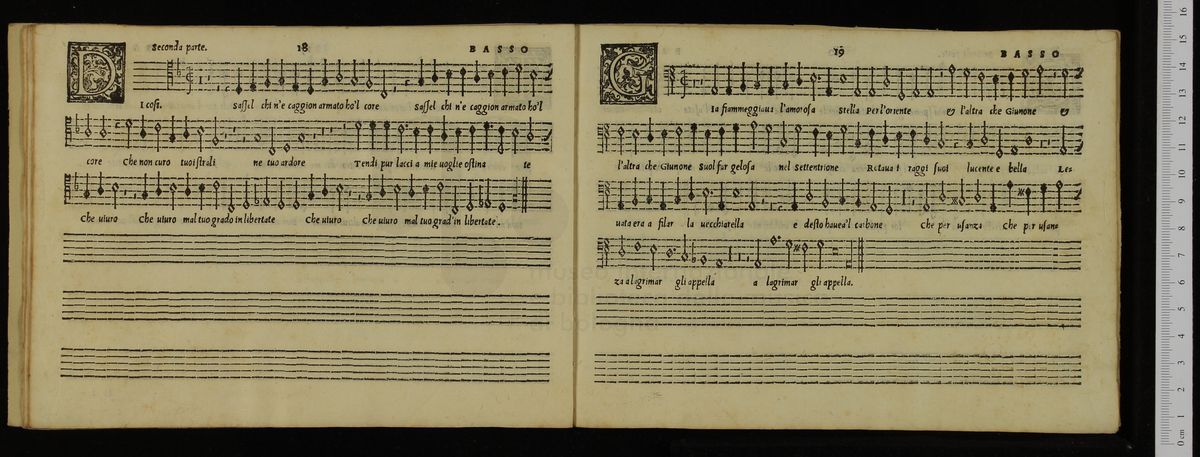 Seconda parte. 18 BASSO
DI cosi. sassel chi n'e caggion armato ho'l core sassel chi n'e caggion armato ho'l
core che non curo tuoi strali ne tuo ardore Tendi pur lacci a mie uoglie ostina te
Che uiuro che uiuro mal tuo grado in libertate che uiuro che uiuro mal tuo grad' in libertate.
19 BASSO
GIa fiammeggiaua l'amorosa stella Per l'oriente & l'altra che Giunone &
l'altra che Giunone Suol far gelosa nel settentrione Rotaua i raggi suoi lucente e bella Le-
uata era a filar la uecchiarella e desto hauea'l carbone che per usanza che per usan-
za a lagrimar gli appella a lagrimar gli appella.
museo
bologna
0 cm 1 2 3 4 5 6 7 8 9 10 11 12 13 14 15 16